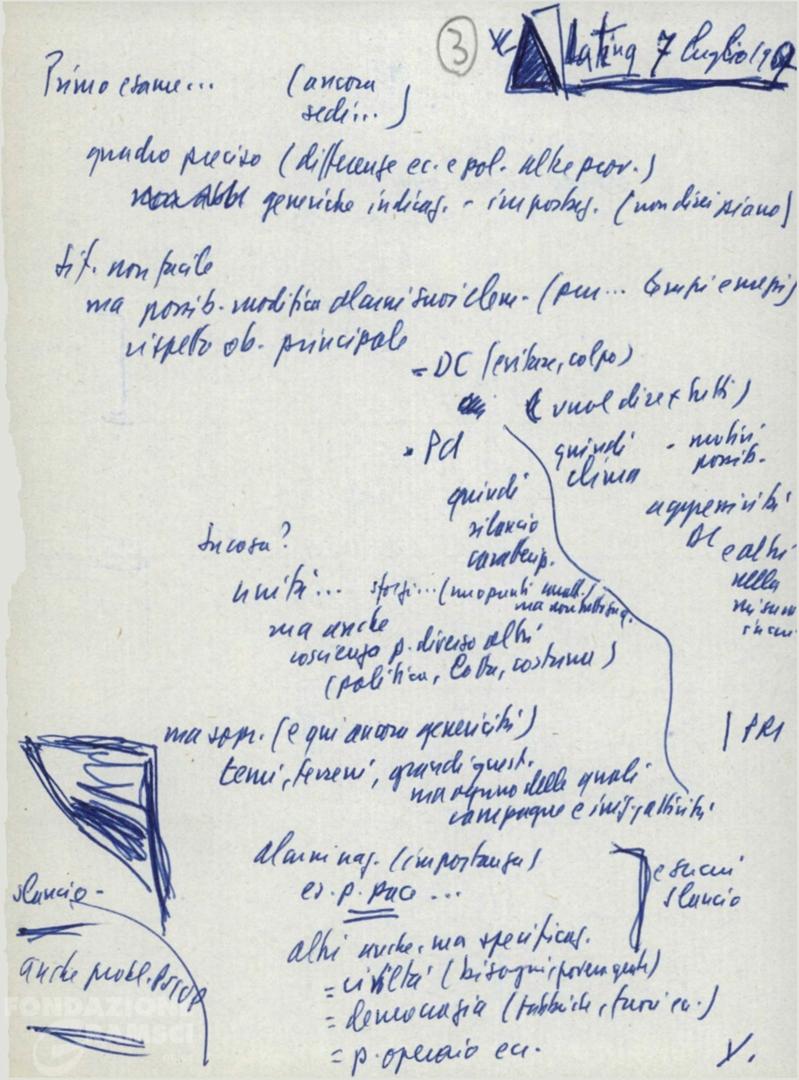 3
Latina 7 luglio 1967
Primo esame... (ancora
sedi...)
quadro preciso (differenze ec. e pol. altre prov.)
generiche indicaz. - impostaz. (non direi piano)
Sit. non facile
ma possib. modifica alcuni suoi elem. (per... tempi e mezzi)
rispetto ob. principale
= DC (evitare, colpo)
(vuol dire x tutti)
= PCI
quindi clima
- motivi possib.
quindi
rilancio
aggressività
DC e altri
nella
misura
Su cosa?
unità... sforzi...
ma anche
coscienza p. diverso altri
(politica, lotta, costume)
| PRI
ma sopr. (e qui ancora genericità)
temi, terreni, grandi quest.
ma ognuno delle quali
campagne e iniz. attività
alcuni naz. (importanza)
es. p. pace ...
slancio
slancio -
altri anche, ma specificaz.
anche probl. PSIUP
= civiltà (bisogni, povera gente)
= democrazia (fabbriche, fuori ec.)
= p. operaio ec.
V.
FONDAZIONE
GRAMSCI